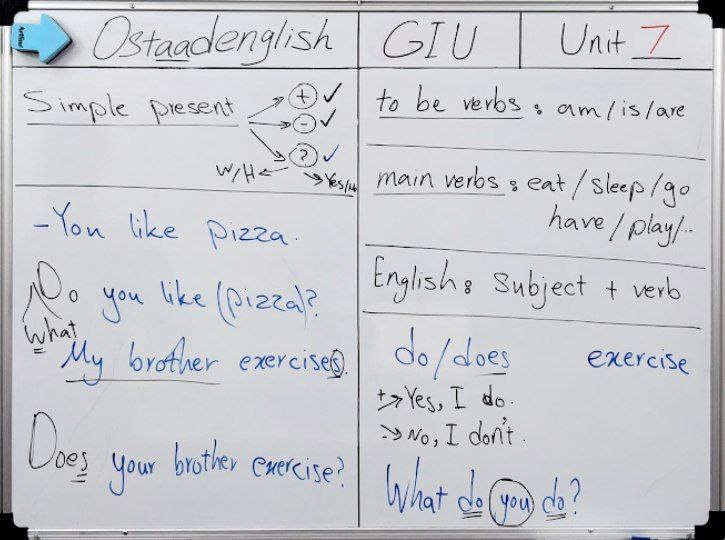 Artline
Ostaadenglish
GIU
Unit 7
Simple present
+ ✓
- ✓
? ✓
W/H
Yes/No
- You like pizza.
Do you like (pizza)?
What
My brother exercises.
Does your brother exercise?
to be verbs : am/is/are
main verbs : eat / sleep / go
have / play /...
English : Subject + verb
do / does exercise
+→ Yes, I do.
-→ No, I don't.
What do you do?